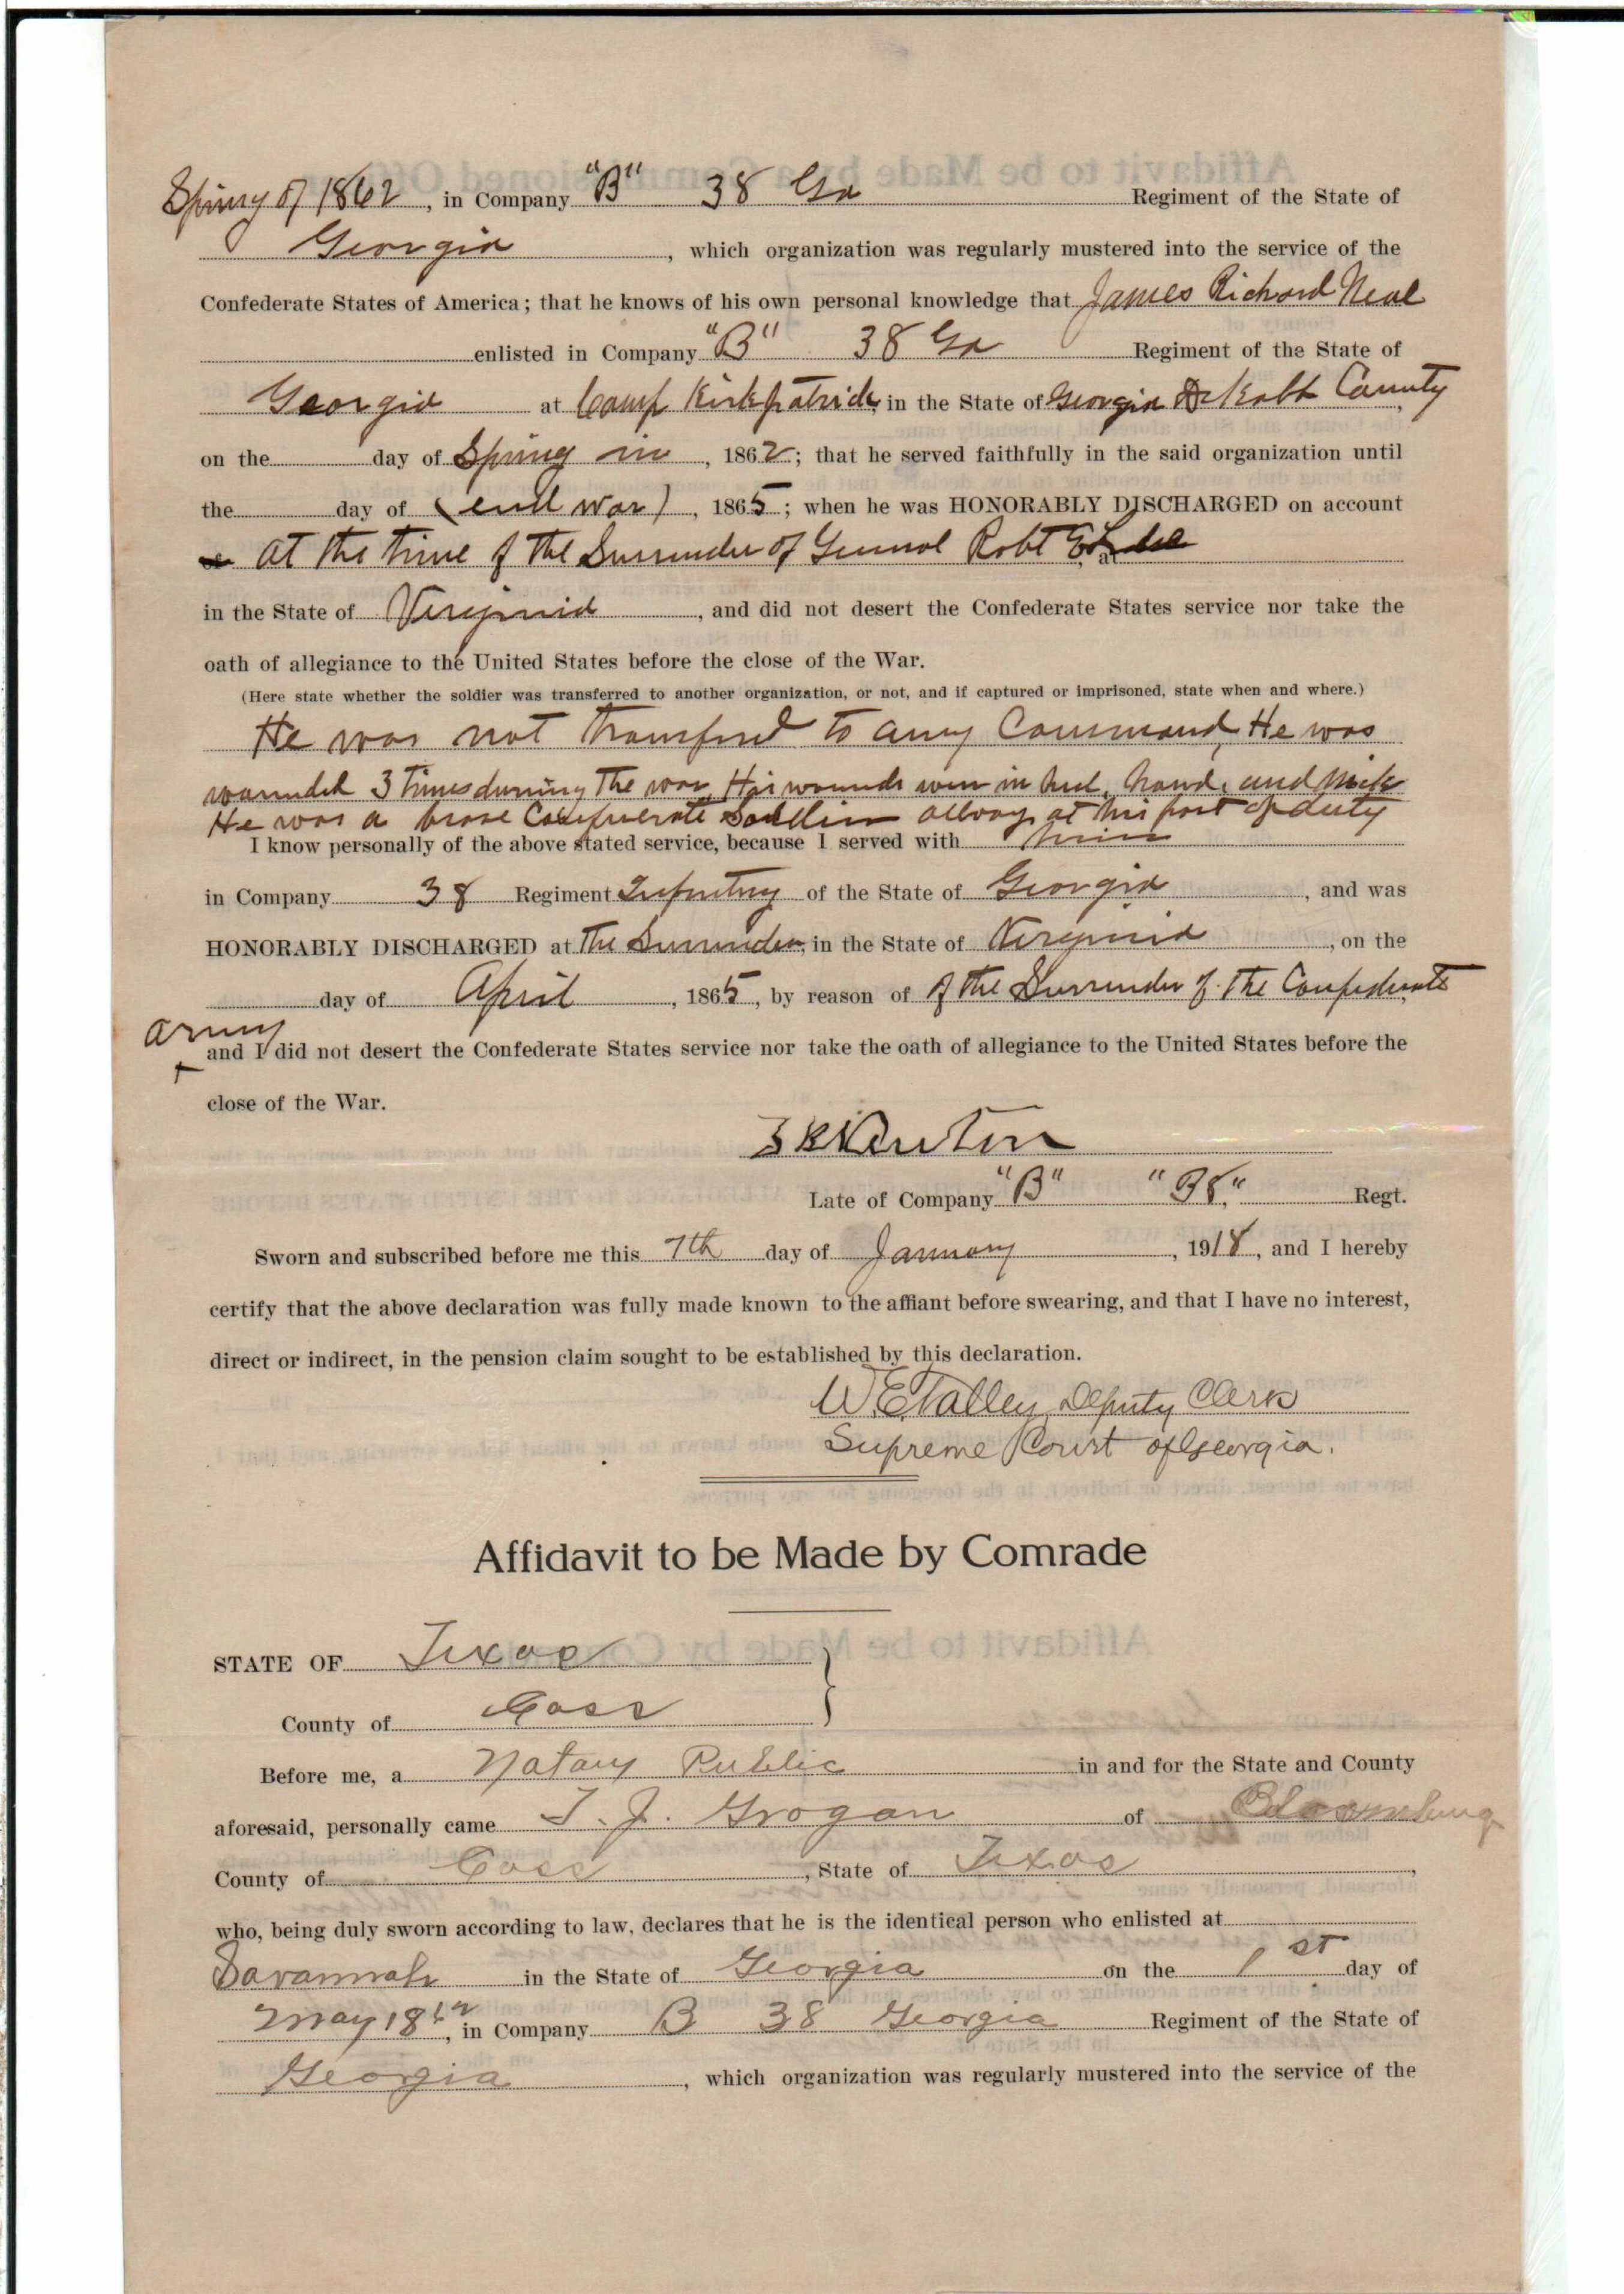 Spring of 1862, in Company "B" 38 Ga Regiment of the State of
Georgia, which organization was regularly mustered into the service of the
Confederate States of America; that he knows of his own personal knowledge that James Richard Neal
enlisted in Company "B" 38 Ga Regiment of the State of
Georgia at Camp Kirkpatrick, in the State of Georgia DeKalb County
on the day of Spring in, 1862; that he served faithfully in the said organization until
the day of (end war), 1865; when he was HONORABLY DISCHARGED on account
at the time of the Surrender of General Robt E Lee at
in the State of Virginia, and did not desert the Confederate States service nor take the
oath of allegiance to the United States before the close of the War.
(Here state whether the soldier was transferred to another organization, or not, and if captured or imprisoned, state when and where.)
He was not transfered to any Command, He was
wounded 3 times during the war, His wounds were in heel, hand, and neck
He was a brave Confederate Soldier allways at his post of duty
I know personally of the above stated service, because I served with him
in Company 38 Regiment Infantry of the State of Georgia, and was
HONORABLY DISCHARGED at The Surrender, in the State of Virginia, on the
day of April, 1865, by reason of of the Surrender of The Confederate
army
and I did not desert the Confederate States service nor take the oath of allegiance to the United States before the
close of the War.
Late of Company "B" "38" Regt.
Sworn and subscribed before me this 7th day of January, 1918, and I hereby
certify that the above declaration was fully made known to the affiant before swearing, and that I have no interest,
direct or indirect, in the pension claim sought to be established by this declaration.
W.E. Talley, Deputy Clerk
Supreme Court of Georgia.
Affidavit to be Made by Comrade
STATE OF Texas
County of Cass
Before me, a Notary Public in and for the State and County
aforesaid, personally came T. J. Grogan of Bloomburg
County of Cass, State of Texas,
who, being duly sworn according to law, declares that he is the identical person who enlisted at
Savannah in the State of Georgia on the 1st day of
May 1862, in Company B 38 Georgia Regiment of the State of
Georgia, which organization was regularly mustered into the service of the